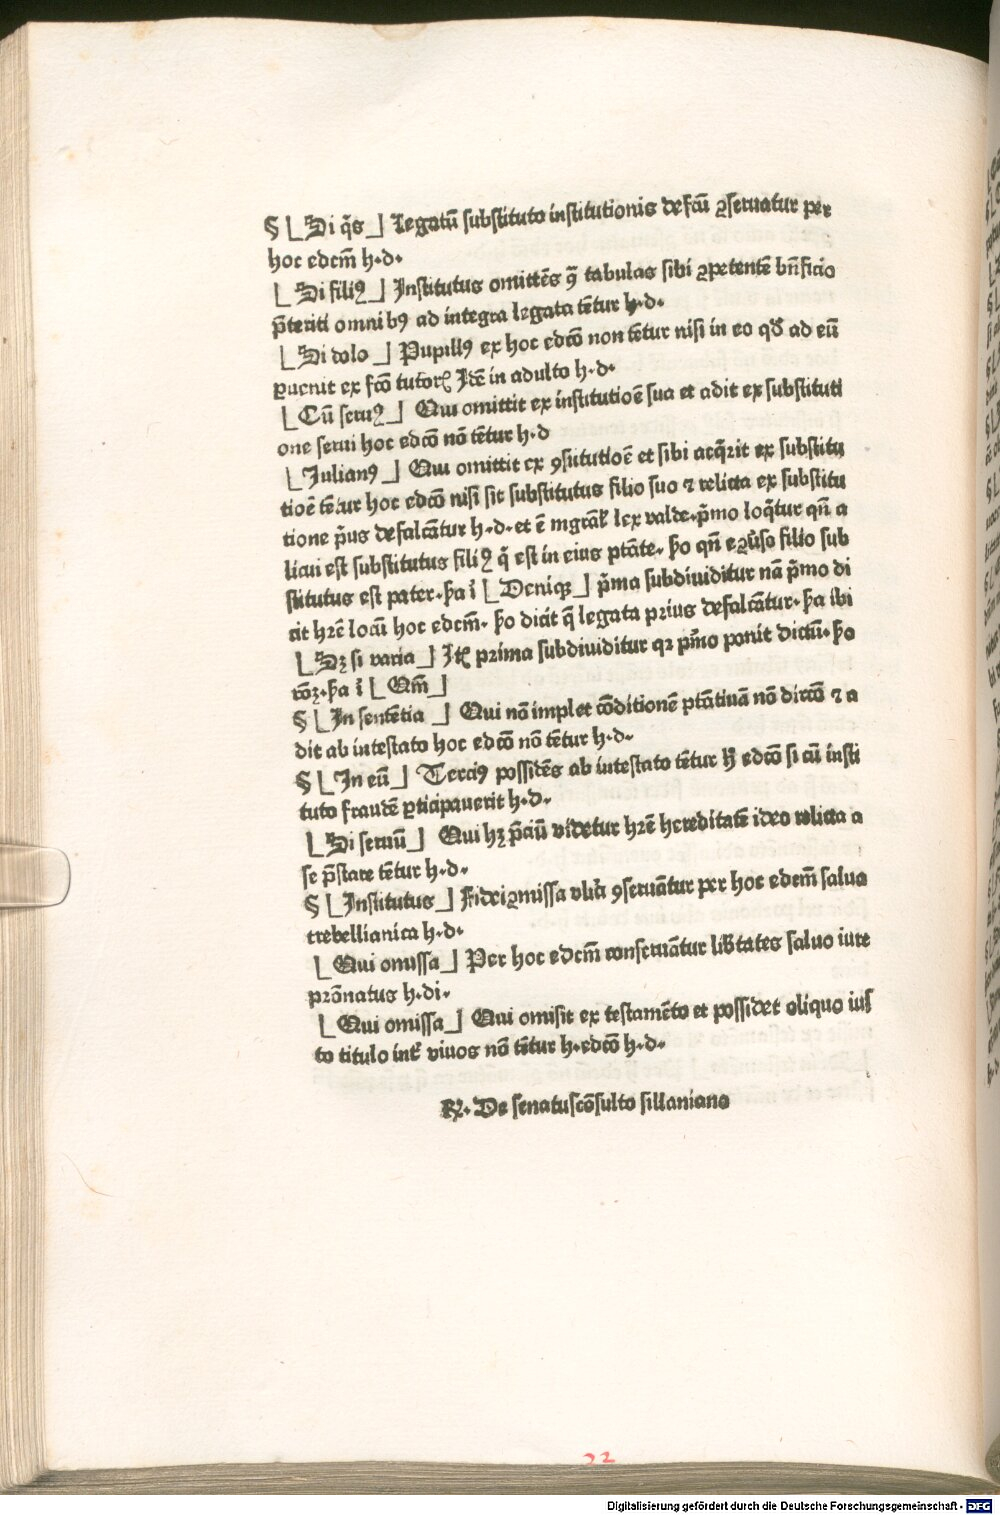 § [Si q̄s] Legatū substituto institutionis defcū ꝯseruatur per
hoc edcm̄ h·d·
[Si filiꝰ] Institutus omittēs q̄ tabulas sibi ꝯpetentē bn̄ficio
p̄teriti omnibꝰ ad integra legata tētur h·d·
[Si dolo] Pupillꝰ ex hoc edcō non tētur nisi in eo qd̄ ad eū
ꝑuenit ex fcō tutorꝭ Idē in adulto h·d·
[Cū seruꝰ] Qui omittit ex institutiōe sua et adit ex substituti
one serui hoc edcō nō tētur h·d
[Julianꝰ] Qui omittit ex ꝯsitutiōe et sibi acq̄rit ex substitu
tiōe tētur hoc edcō nisi sit substitutus filio suo ⁊ relicta ex substitu
tione p̄us defalcātur h·d· et ē mgrāl̄ lex valde· p̄mo loq̄tur qn̄ a
licui est substitutus filiꝰ q̄ est in eius ptāte· þo qn̄ eꝯūso filio sub
stitutus est pater· þa ī [Deniqꝫ] p̄ma subdiuiditur nā p̄mo di
cit hr̄e locū hoc edcm̄· þo dicit q̄ legata prius defalcātur· þa ibi
[Sꝫ si varia] Itꝭ prima subdiuiditur qꝛ p̄mo ponit dictū· þo
rōꝫ· þa ī [Qm̄]
§ [In sentētia] Qui nō implet cōditionē ptātiuā nō dircō ⁊ a
dit ab intestato hoc edcō nō tētur h·d·
§ [In eū] Terciꝰ possidēs ab intestato tētur h̄ edcō si cū insti
tuto fraudē ꝑticipauerit h·d·
[Si seruū] Qui hꝫ p̄ciū videtur hr̄e hereditatē ideo relicta a
se p̄stare tētur h·d·
§ [Institutus] Fideiꝯmissa vl̄ia ꝯseruātur per hoc edem̄ saluo
trebellianica h·d·
[Qui omissa] Per hoc edem̄ conseruātur lib̄tates saluo iure
prōnatus h·di·
[Qui omissa] Qui omisit ex testamēto et possidet oliquo ius
to titulo int̄ viuos nō tētur h·edcō h·d·
R̄· De senatuscōsulto sillaniano
22
Digitalisierung gefördert durch die Deutsche Forschungsgemeinschaft - DFG